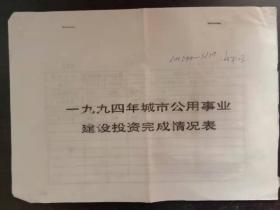 一九九四年城市公用事业
建设投资完成情况表